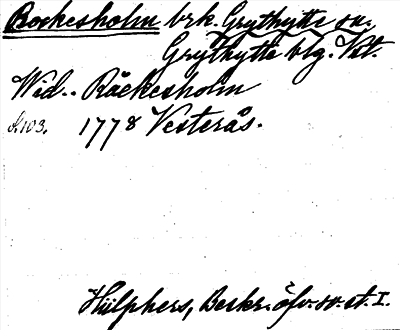 Rockesholm brk. Grythytte sn.
Grythytte blg. Vstm.
Wid.. Råckesholm
s. 103. 1778 Vesterås.
Hülphers, Beskr. öfv. sv. st. I.